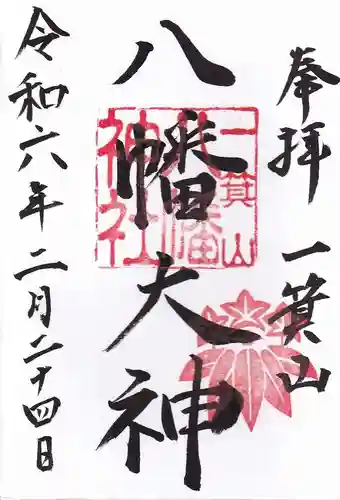 奉拝
一箕山
八幡大神
一箕山
八幡
神社
令和六年二月二十四日